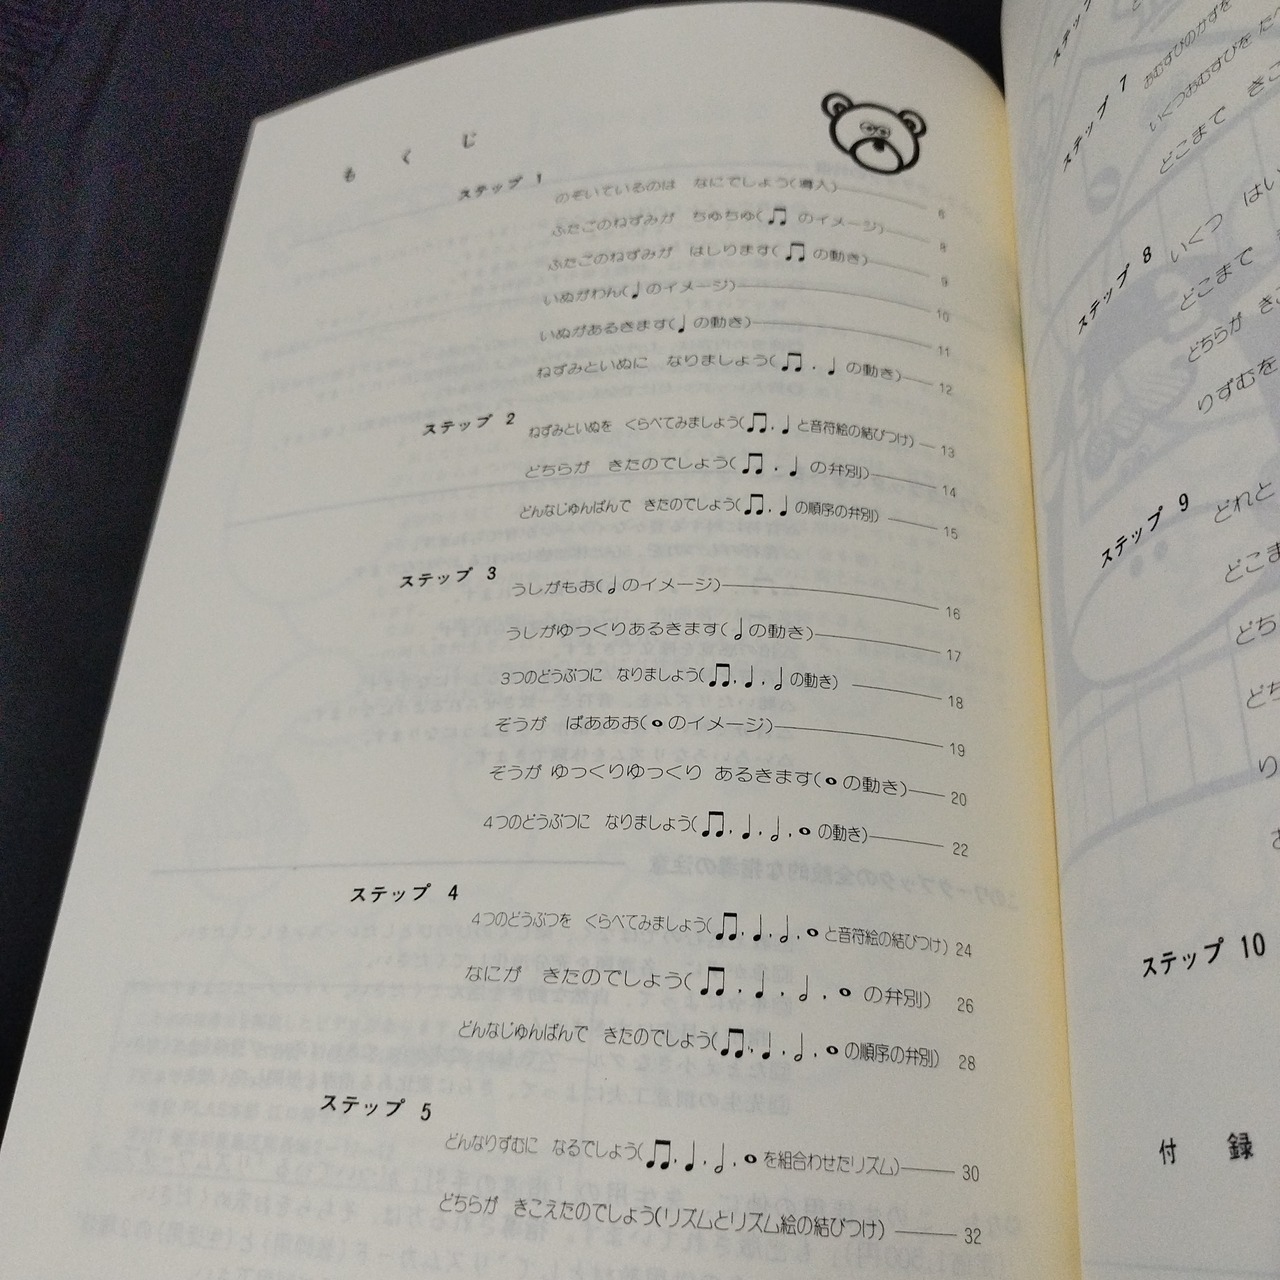 もくじ
ステップ 1
のぞいているのは なにでしよう(導入) 6
ふたごのねずみが ちゅちゅ(♫ のイメージ) 8
ふたごのねずみが はしります(♫ の動き) 9
いぬがわん(♩のイメージ) 10
いぬがあるきます(♩の動き) 11
ねずみといぬに なりましょう(♫ . ♩ の動き) 12
ステップ 2
ねずみといぬを くらべてみましょう(♫. ♩と音符絵の結びつけ) 13
どちらが きたのでしょう(♫ . ♩ の弁別) 14
どんなじゅんばんで きたのでしょう(♫. ♩の順序の弁別) 15
ステップ 3
うしがもお(𝅗𝅥のイメージ) 16
うしがゆっくりあるきます(𝅗𝅥の動き) 17
3つのどうぶつに なりましょう(♫. ♩. 𝅗𝅥の動き) 18
ぞうが ぱあああお(𝅝のイメージ) 19
ぞうが ゆっくりゆっくり あるきます(𝅝の動き) 20
4つのどうぶつに なりましょう(♫. ♩. 𝅗𝅥. 𝅝の動き) 22
ステップ 4
4つのどうぶつを くらべてみましょう(♫. ♩. 𝅗𝅥. 𝅝と音符絵の結びつけ) 24
なにが きたのでしょう(♫. ♩. 𝅗𝅥. 𝅝 の弁別) 26
どんなじゅんばんで きたのでしょう(♫. ♩. 𝅗𝅥. 𝅝の順序の弁別) 28
ステップ 5
どんなりずむに なるでしょう(♫. ♩. 𝅗𝅥. 𝅝を組合わせたリズム) 30
どちらが きこえたのでしょう(リズムとリズム絵の結びつけ) 32
ステップ
おむすびのかずを
ステップ 7
いくつおむすびを た
どこまで きこ
ステップ 8
いくつ はい
どこまで
どちらが きこ
りずむを
ステップ 9
どれと
どこま
どち
どち
り
ステップ 10
付 録